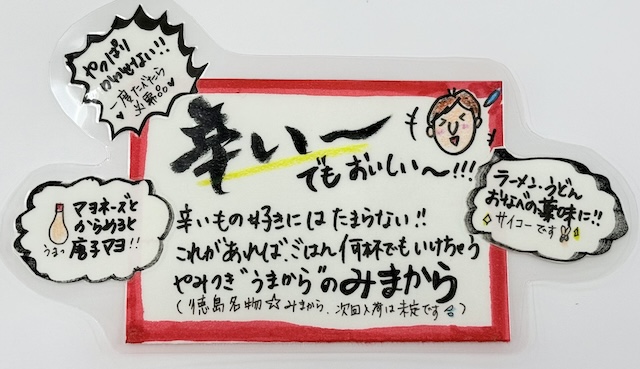 やっぱり
ハマらない!!
一度たべたら
必要♡♡
辛い〜
でもおいしい〜!!!
マヨネーズと
からめると
唐子マヨ!!
うまっ
ラーメン・うどん
おなべの薬味に!!
サイコーです
辛いもの好きにはたまらない!!
これがあればごはん何杯でもいけちゃう
やみつき"うまから"のみまから
(徳島名物☆みまから、次回入荷は未定です)